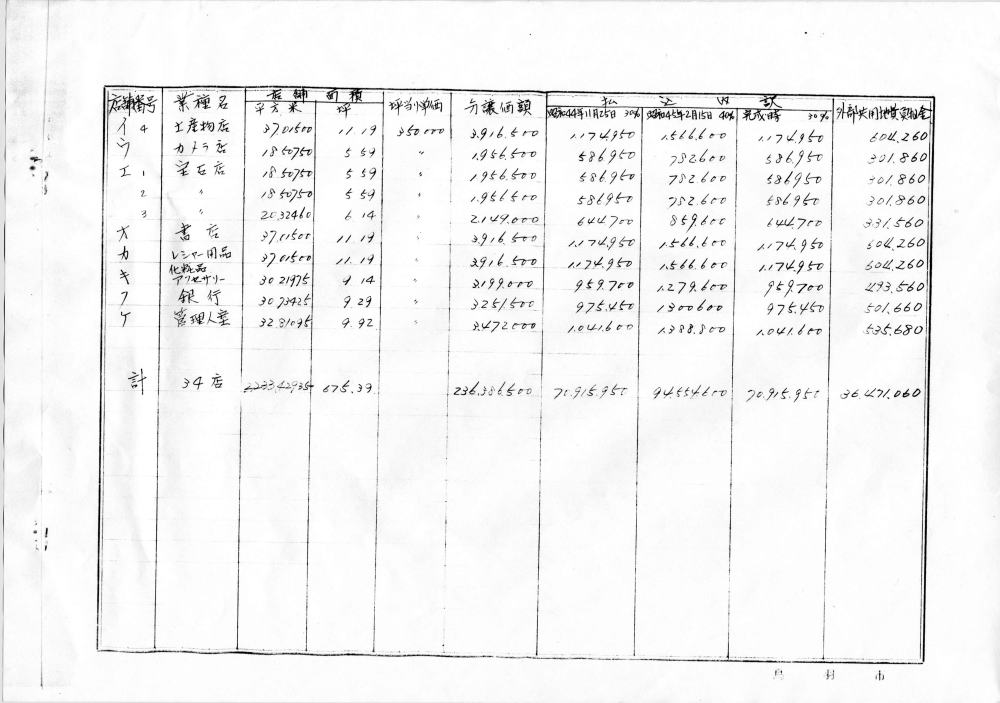 店舗番号 業種名 店舗面積 坪当り単価 分譲価額 払込内訳 外部共用地費負担金
平方米 坪 昭和44年11月25日 30% 昭和45年2月15日 40% 完成時 30%
イ 4 土産物店 37.01500 11.19 350.000 3.916.500 1.174.950 1.566.600 1.174.950 604.260
ウ カメラ店 18.50750 5.59 〃 1.956.500 586.950 782.600 586.950 301.860
エ 1 宝石店 18.50750 5.59 〃 1.956.500 586.950 782.600 586.950 301.860
2 〃 18.50750 5.59 〃 1.956.500 586.950 782.600 586.950 301.860
3 〃 20.32460 6.14 〃 2.149.000 644.700 859.600 644.700 331.560
オ 書店 37.01500 11.19 〃 3.916.500 1.174.950 1.566.600 1.174.950 604.260
カ レジャー用品 37.01500 11.19 〃 3.916.500 1.174.950 1.566.600 1.174.950 604.260
キ 化粧品 アクセサリー 30.21975 9.14 〃 3.199.000 959.700 1.279.600 959.700 493.560
ク 銀行 30.73425 9.29 〃 3.251.500 975.450 1.300.600 975.450 501.660
ケ 管理人室 32.81095 9.92 〃 3.472.000 1.041.600 1.388.800 1.041.600 535.680
計 34店 2233.42935 675.39 236.386.500 70.915.950 94.554.600 70.915.950 36.471.060
鳥羽市